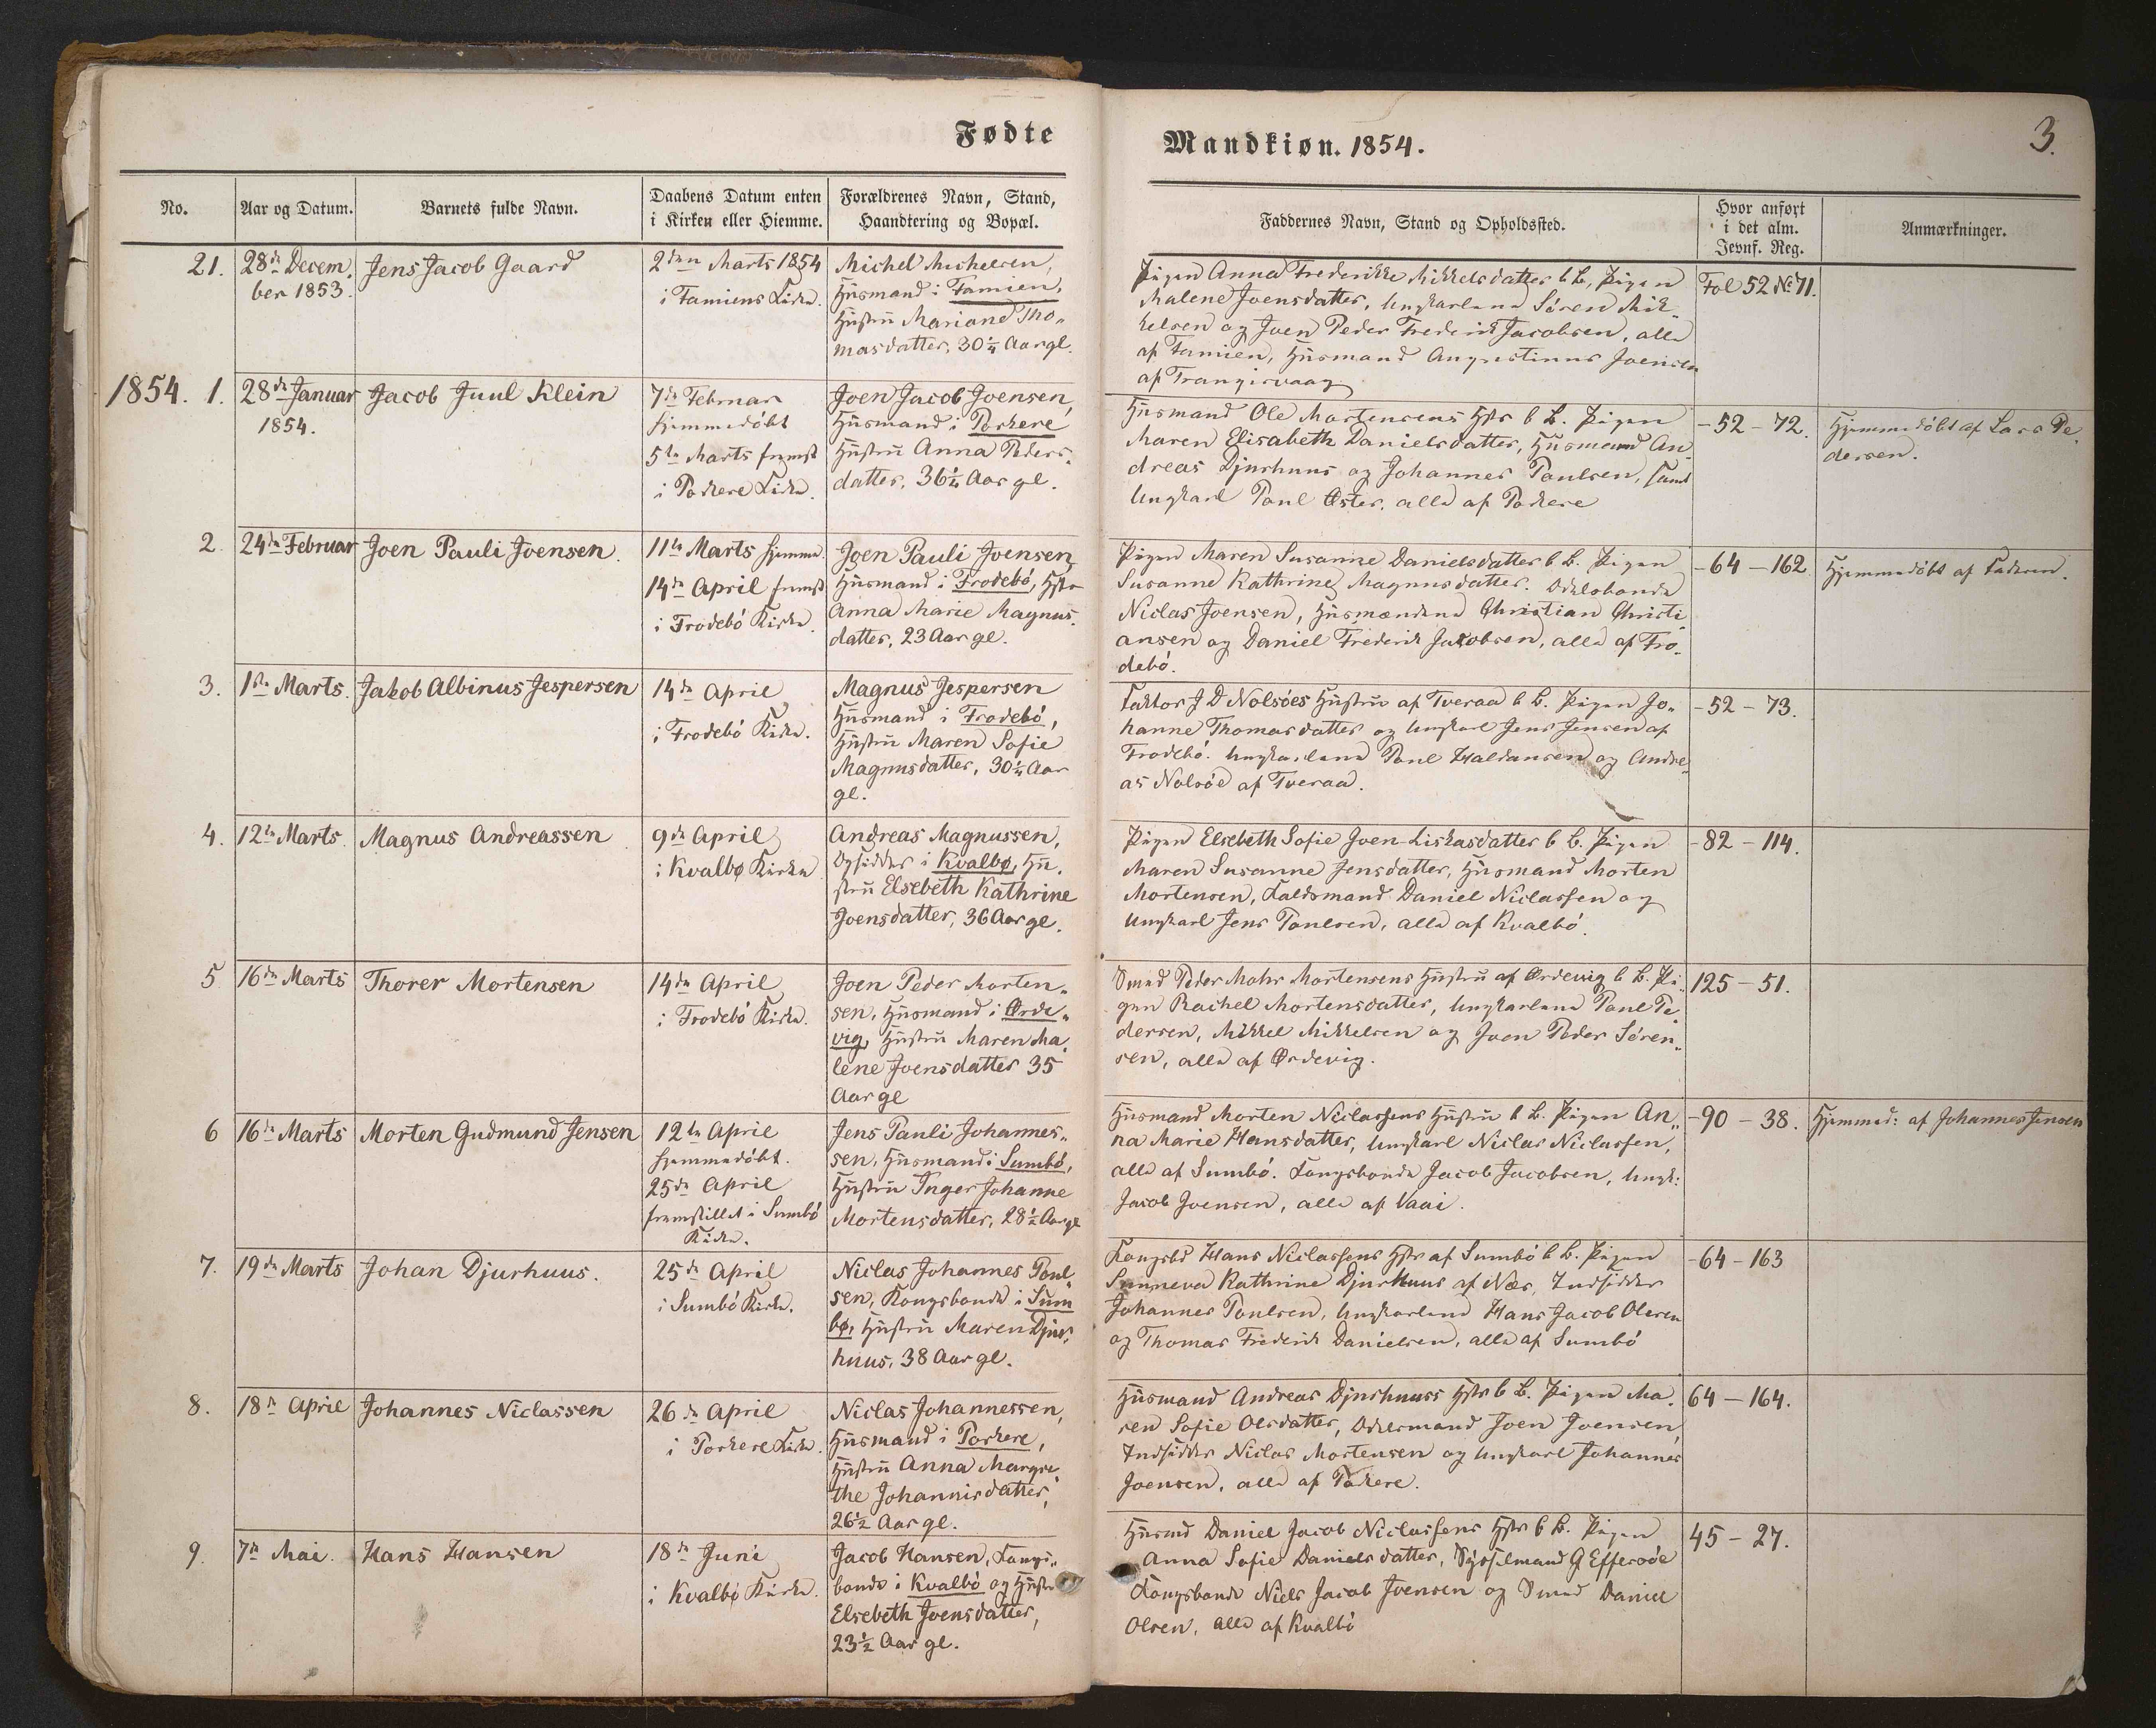 Fødte
Mandkiøn. 1854.
3.
No.
Aar og Datum.
Barnets fulde Navn.
Daabens Datum enten
i Kirken eller Hiemme.
Forældrenes Navn, Stand,
Haandtering og Bopæl.
Faddernes Navn, Stand og Opholdssted.
Hvor anført
i det alm.
Jevnf. Reg.
Anmærkninger.
21.
28de Decem-
ber 1853.
Jens Jacob Gaard
2den Marts 1854
i Famiens Kirke.
Michel Michelsen,
Huusmand i Famien,
Hustru Mariane Tho-
masdatter, 30¼ Aar gl.
Pigen Anna Frederikke Mikkelsdatter b. B., Pigen
Malene Joensdatter, Ungkarlene Søren Mik-
kelsen og Joen Peder Frederik Jacobsen, alle
af Famien, Huusmand Augustinus Joensen
af Trangisvaag
Fol 52 No 71.
1854. 1.
28de Januar
1854.
Jacob Juul Klein
7de Februar
hjemmedøbt
5te Marts fremst
i Porkere Kirke.
Joen Jacob Joensen,
Huusmand i Porkere
Hustru Anna Peders-
datter, 36¼ Aar gl.
Huusmand Ole Mortensens Hstr b. B. Pigen
Maren Elisabeth Danielsdatter, Huusmænd An-
dreas Djurhuus og Johannes Poulsen, samt
Ungkarl Poul Øster, alle af Porkere
- 52 - 72.
Hjemmedøbt af Lars Pe-
dersen.
2.
24de Februar
Joen Pauli Joensen.
11te Marts hjemme.
14de April fremst
i Frodebö Kirke.
Joen Pauli Joensen,
Huusmand i Frodebö, Hstr
Anna Marie Magnus-
datter, 23 Aar gl.
Pigen Maren Susanne Danielsdatter b. B. Pigen
Susanne Kathrine Magnusdatter. Odelsbonde
Niclas Joensen, Huusmændene Christian Christi-
ansen og Daniel Frederik Jakobsen, alle af Fro-
debö.
- 64 - 162.
Hjemmedøbt af Faderen.
3.
1ste Marts.
Jakob Albinus Jespersen
14de April
i Frodebö Kirke.
Magnus Jespersen
Huusmand i Frodebö,
Hustru Maren Sofie
Magnusdatter, 30¼ Aar
gl.
Faktor J D Nolsöes Hustru af Tveraa b. B. Pigen Jo-
hanne Thomasdatter og Ungkarl Jens Jensen af
Frodebö. Ungkarlene Poul Haldansen og Andre-
as Nolsöe af Tveraa.
- 52 - 73.
4.
12te Marts.
Magnus Andreassen
9de April
i Kvalbø Kirke
Andreas Magnussen,
Opsidder i Kvalbø, Hu-
stru Elsebeth Kathrine
Joensdatter, 36 Aar gl.
Pigen Elsebeth Sofie Joen-Liskasdatter b. B. Pigen
Maren Susanne Jensdatter, Huusmand Morten
Mortensen, Daniel Niclassen og
Ungkarl Jens Poulsen, alle af Kvalbö.
- 82 - 114.
5
16de Marts
Thorer Mortensen
14de April
i Frodebö Kirke.
Joen Peder Morten-
sen, Huusmand i Örde-
vig, Hustru Maren Ma-
lene Joensdatter 35
Aar gl
Smed Peder Mohr Mortensens Hustru af Ördevig b. B. Pi-
gen Rachel Mortensdatter, Ungkarlene Poul Pe-
dersen, Mikkel Mikkelsen og Joen Peder Sören-
sen, alle af Ördevig.
125 - 51.
6
16de Marts
Morten Gudmund Jensen
12te April
hjemmedøbt.
25de April
fremstillet i Sumbö
Kirke.
Jens Pauli Johannes-
sen, Huusmand i Sumbö,
Hustru Inger Johanne
Mortensdatter, 28½ Aar gl
Huusmand Morten Niclassens Hustru b. B. Pigen An-
na Marie Hansdatter, Ungkarl Niclas Niclassen,
alle af Sumbö. Kongsbonde Jacob Jacobsen, Ungk:
Jacob Joensen, alle af Vaai.
- 90 - 38.
Hjemmed: af Johannes Jensen
7.
19de Marts
Johan Djurhuus.
25de April
i Sumbö Kirke.
Niclas Johannes Poul-
sen, Kongsbonde i Sum
bø, Hustru Maren Djur-
huus, 38 Aar gl.
Kongsbd Hans Niclassens Hstr af Sumbö b. B. Pigen
Sunneva Kathrine Djurhuus af Næs, Indsidder
Johannes Poulsen, Ungkarlene Hans Jacob Olesen
og Thomas Frederik Danielsen, alle af Sumbö
- 64 - 163
8.
18de April
Johannes Niclassen
26de April
i Porkere Kirke.
Niclas Johannessen,
Huusmand i Porkere,
Hustru Anna Margre-
the Johannisdatter,
26½ Aar gl.
Huusmand Andreas Djurhuuss Hstr b. B. Pigen Ma-
ren Sofie Olesdatter, Joen Joensen,
Indsidder Niclas Mortensen og Ungkarl Johannes
Joensen, alle af Porkere.
64 - 164.
9.
7de Mai.
Hans Hansen
18de Juni
i Kvalbø Kirke.
Jacob Hansen, Kongs-
bonde i Kvalbö og Hustru
Elsebeth Joensdatter,
23½ Aar gl.
Huusmd Daniel Jacob Niclassens Hstr b. B. Pigen
Anna Sofie Danielsdatter, Sysselmand G Effersöe
Kongsbonde Niels Jacob Joensen og Smed Daniel
Olsen, alle af Kvalbö
45 - 27.